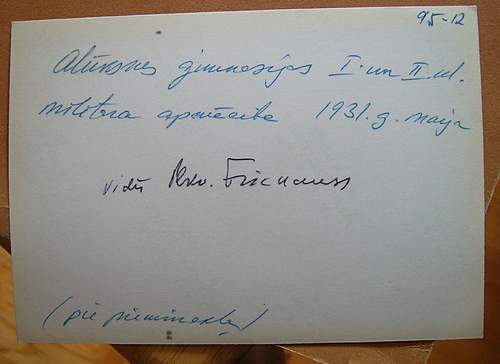 95-12
Alūksnes ģimnāzijas I un II kl.
militāra apmācība 1931. g. maijā
vidū Rkv. Frickauss
(pie pieminekļa)